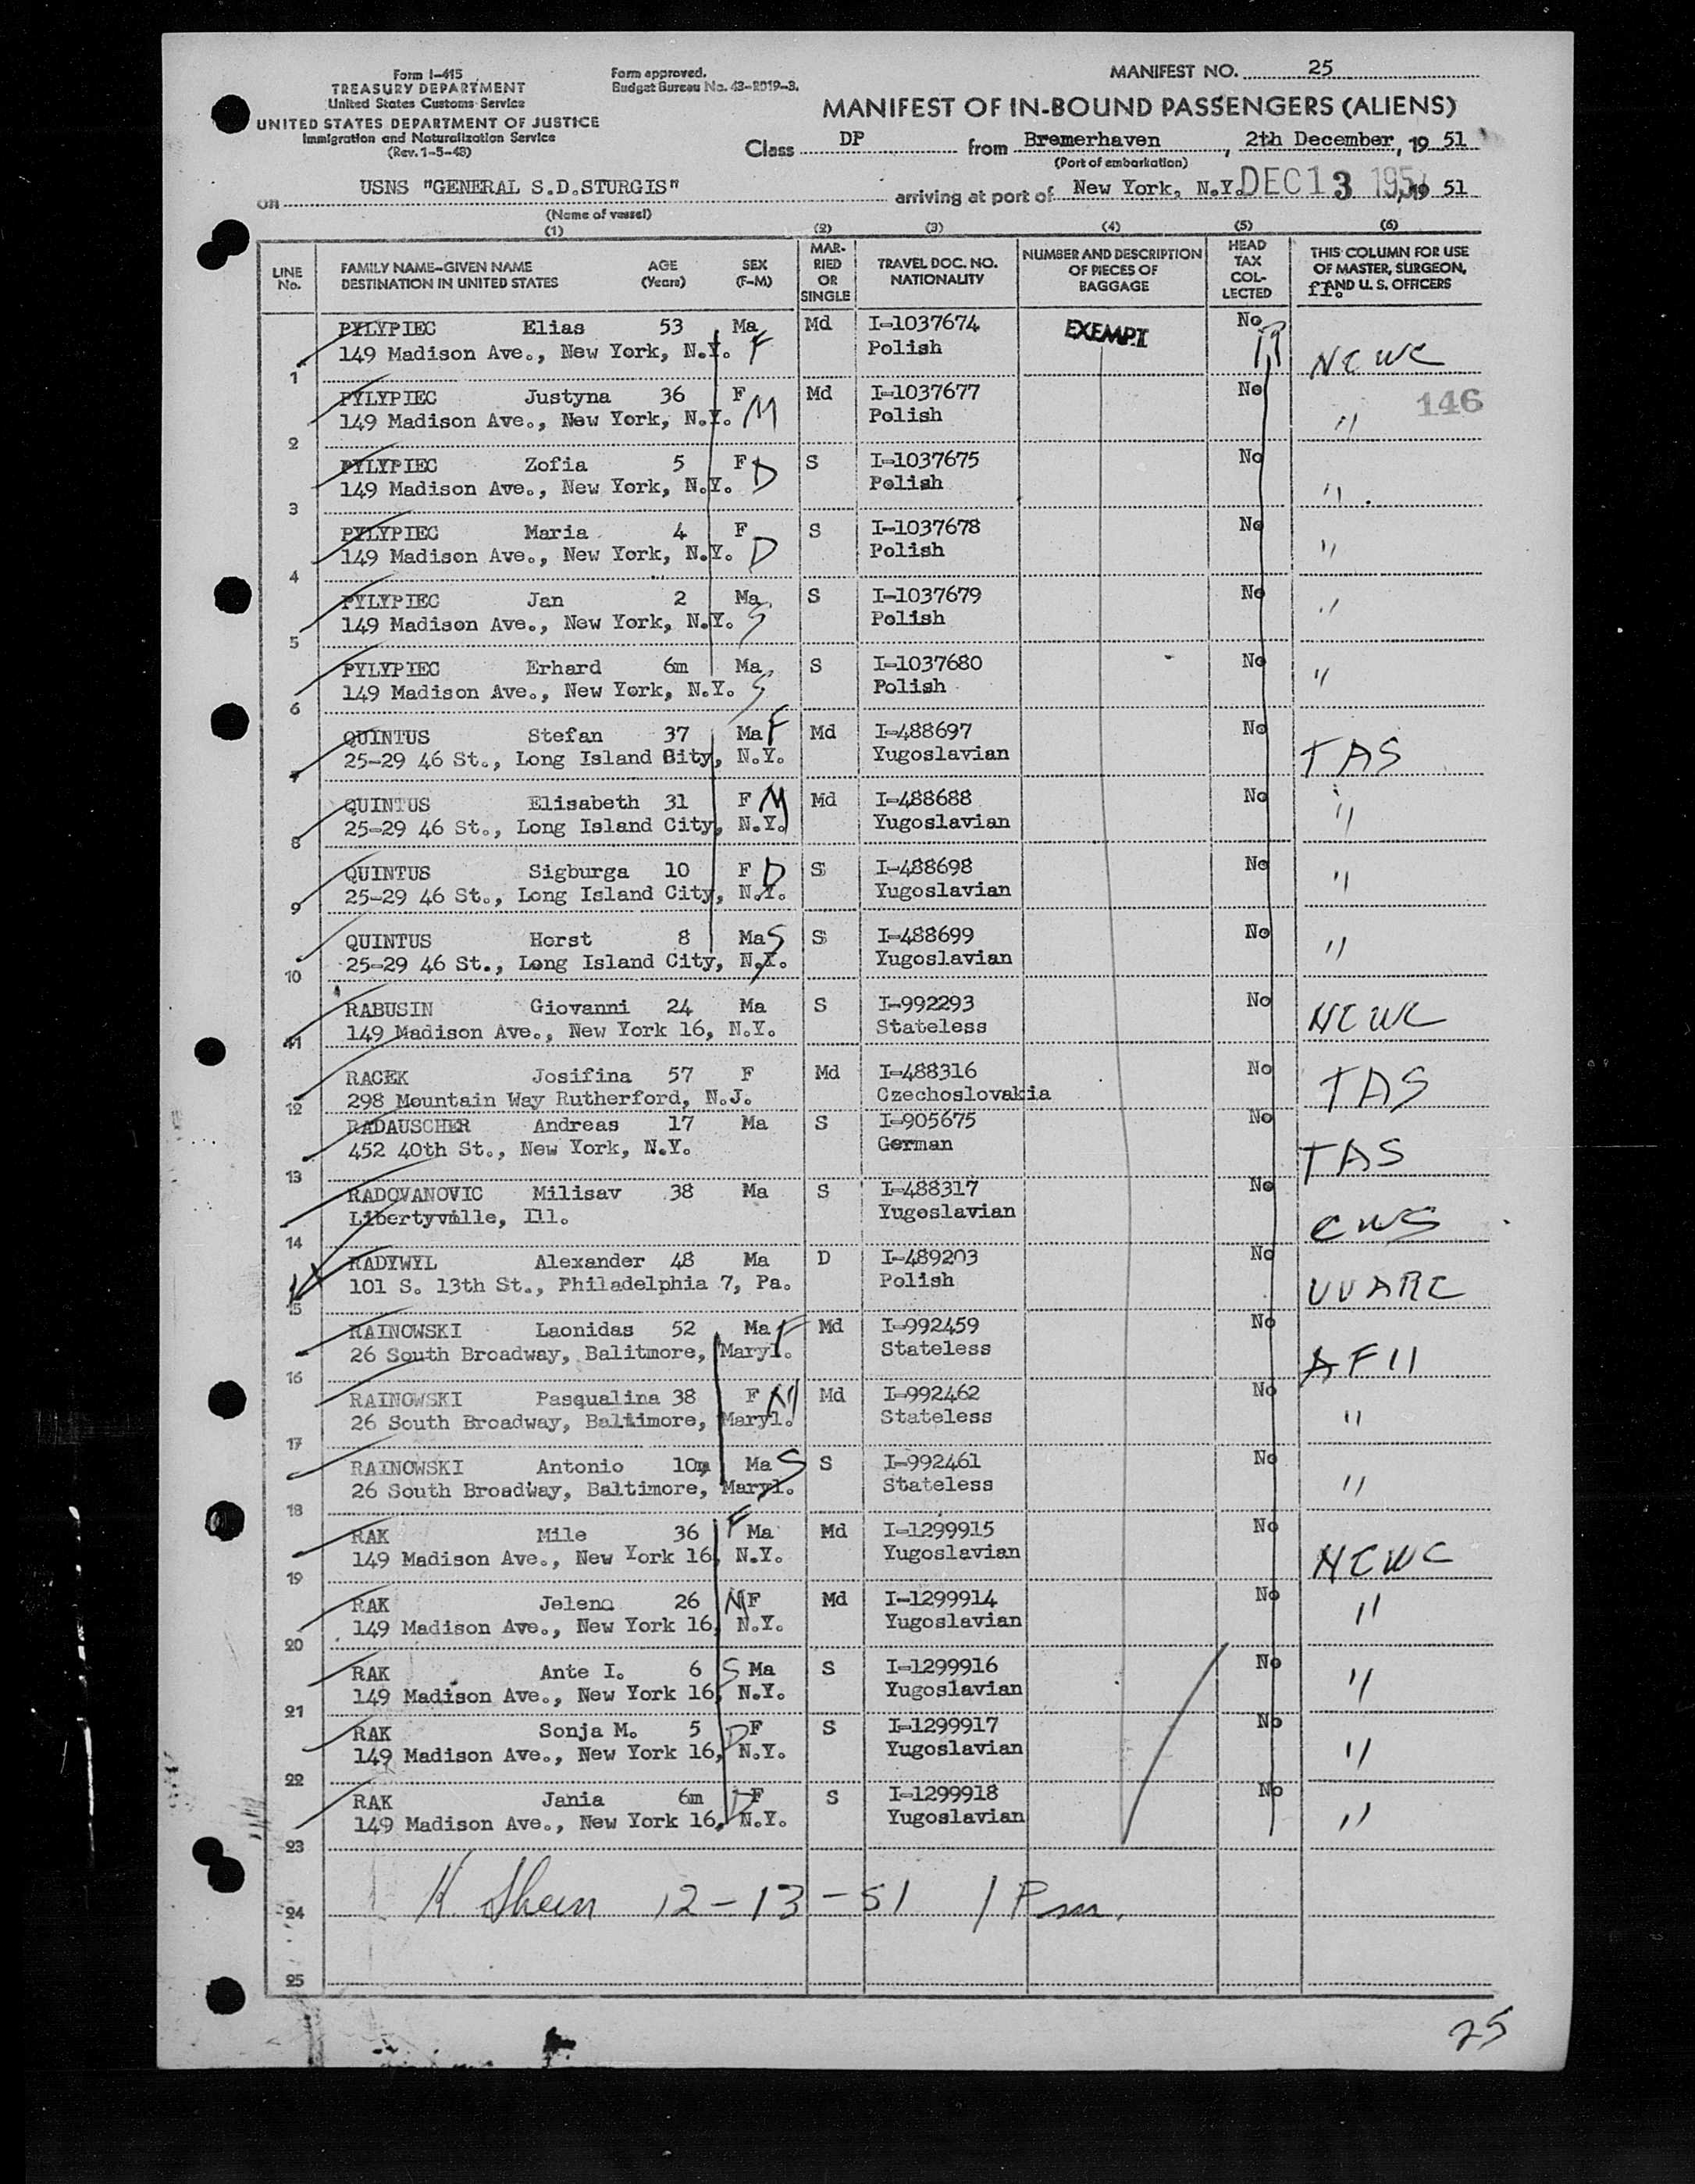 Form I-415
TREASURY DEPARTMENT
United States Customs Service
UNITED STATES DEPARTMENT OF JUSTICE
Immigration and Naturalization Service
(Rev. 1-5-48)
Form approved.
Budget Bureau No. 43-R019-3.
MANIFEST NO. 25
MANIFEST OF IN-BOUND PASSENGERS (ALIENS)
Class DP from Bremerhaven, 2th December, 19 51
(Port of embarkation)
on USNS "GENERAL S.D.STURGIS" arriving at port of New York, N.Y. DEC 13 1951 19 51
(Name of vessel)
(1) (2) (3) (4) (5) (6)
LINE No. FAMILY NAME-GIVEN NAME DESTINATION IN UNITED STATES AGE (Years) SEX (F-M) MARRIED OR SINGLE TRAVEL DOC. NO. NATIONALITY NUMBER AND DESCRIPTION OF PIECES OF BAGGAGE HEAD TAX COLLECTED THIS COLUMN FOR USE OF MASTER, SURGEON, AND U. S. OFFICERS
PYLYPIEC Elias 53 Ma Md I-1037674 EXEMPT No
149 Madison Ave., New York, N.Y. F Polish NCWC
1
PYLYPIEC Justyna 36 F Md I-1037677 No 146
149 Madison Ave., New York, N.Y. M Polish "
2
PYLYPIEC Zofia 5 F D S I-1037675 No
149 Madison Ave., New York, N.Y. Polish "
3
PYLYPIEC Maria 4 F S I-1037678 No
149 Madison Ave., New York, N.Y. D Polish "
4
PYLYPIEC Jan 2 Ma S I-1037679 No
149 Madison Ave., New York, N.Y. S Polish "
5
PYLYPIEC Erhard 6m Ma S I-1037680 No
149 Madison Ave., New York, N.Y. S Polish "
6
QUINTUS Stefan 37 Ma F Md I-488697 No
25-29 46 St., Long Island City, N.Y. Yugoslavian TAS
7
QUINTUS Elisabeth 31 F M Md I-488688 No
25-29 46 St., Long Island City, N.Y. Yugoslavian "
8
QUINTUS Sigburga 10 F D S I-488698 No
25-29 46 St., Long Island City, N.Y. Yugoslavian "
9
QUINTUS Horst 8 Ma S S I-488699 No
25-29 46 St., Long Island City, N.Y. Yugoslavian "
10
RABUSIN Giovanni 24 Ma S I-992293 No
149 Madison Ave., New York 16, N.Y. Stateless NCWC
11
RACEK Josifina 57 F Md I-488316 No
298 Mountain Way Rutherford, N.J. Czechoslovakia TAS
12
RADAUSCHER Andreas 17 Ma S I-905675 No
452 40th St., New York, N.Y. German TAS
13
RADOVANOVIC Milisav 38 Ma S I-488317 No
Libertyville, Ill. Yugoslavian CWS
14
RADYWYL Alexander 48 Ma D I-489203 No
101 S. 13th St., Philadelphia 7, Pa. Polish UUARC
15
RAINOWSKI Laonidas 52 Ma F Md I-992459 No
26 South Broadway, Balitmore, Maryl. Stateless
16
RAINOWSKI Pasqualina 38 F M Md I-992462 No
26 South Broadway, Baltimore, Maryl. Stateless "
17
RAINOWSKI Antonio 10m Ma S S I-992461 No
26 South Broadway, Baltimore, Maryl. Stateless "
18
RAK Mile 36 F Ma Md I-1299915 No
149 Madison Ave., New York 16, N.Y. Yugoslavian NCWC
19
RAK Jelena 26 M F Md I-1299914 No
149 Madison Ave., New York 16, N.Y. Yugoslavian "
20
RAK Ante I. 6 S Ma S I-1299916 No
149 Madison Ave., New York 16, N.Y. Yugoslavian "
21
RAK Sonja M. 5 D F S I-1299917 No
149 Madison Ave., New York 16, N.Y. Yugoslavian "
22
RAK Jania 6m D F S I-1299918 No
149 Madison Ave., New York 16, N.Y. Yugoslavian "
23
12-13-51 1 Pm.
24
25
25